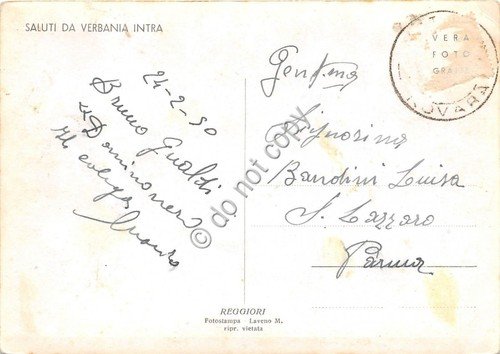 SALUTI DA VERBANIA INTRA
24-2-50
Bruno Gualdi
"Domino nero
VERA
FOTO
GRAFIA
NOVARA
Gent.ma
Signorina
Bandini Luisa
S. Lazzaro
Parma
© do not copy
REGGIORI
Fotostampa Laveno M.
ripr. vietata